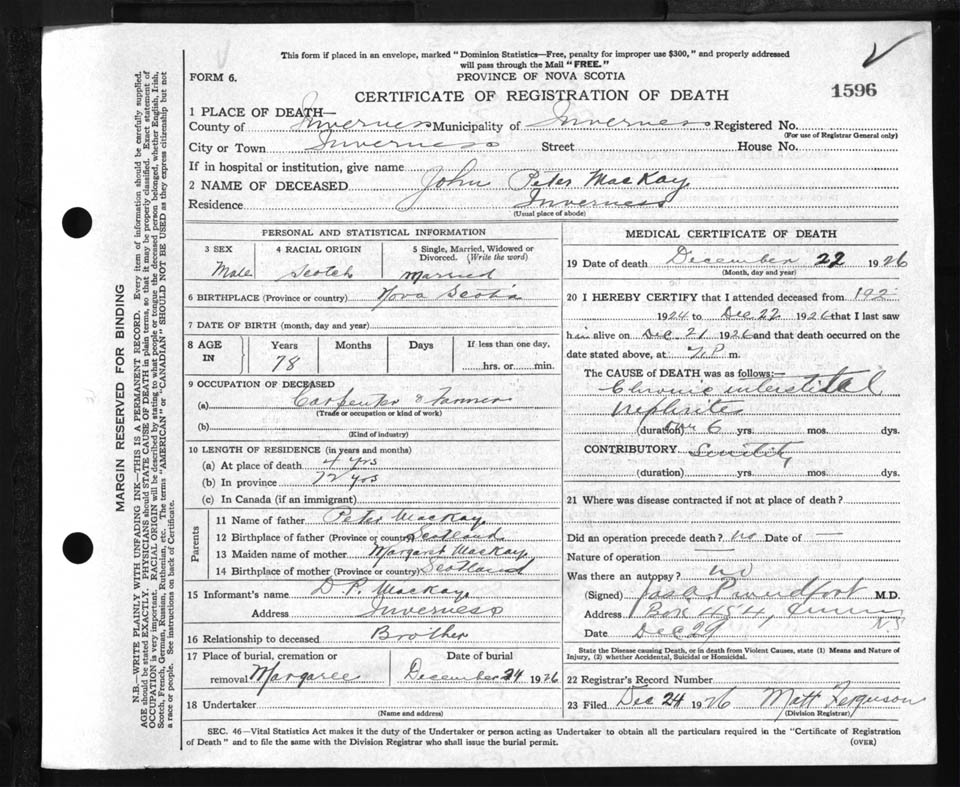 This form if placed in an envelope, marked "Dominion Statistics—Free, penalty for improper use $300," and properly addressed
will pass through the Mail "FREE."
FORM 6.
PROVINCE OF NOVA SCOTIA
CERTIFICATE OF REGISTRATION OF DEATH
1596
1 PLACE OF DEATH—
County of Inverness Municipality of Inverness Registered No.
(For use of Registrar General only)
City or Town Inverness Street House No.
If in hospital or institution, give name
2 NAME OF DECEASED John Peter MacKay
Residence Inverness
(Usual place of abode)
PERSONAL AND STATISTICAL INFORMATION
3 SEX 4 RACIAL ORIGIN 5 Single, Married, Widowed or Divorced. (Write the word)
Male Scotch Married
6 BIRTHPLACE (Province or country) Nova Scotia
7 DATE OF BIRTH (month, day and year)
8 AGE IN Years Months Days If less than one day,
78 hrs. or min.
9 OCCUPATION OF DECEASED
(a) Carpenter & Farmer
(Trade or occupation or kind of work)
(b)
(Kind of industry)
10 LENGTH OF RESIDENCE (in years and months)
(a) At place of death 4 yrs
(b) In province
(c) In Canada (if an immigrant)
Parents
11 Name of father Peter MacKay
12 Birthplace of father (Province or country) Scotland
13 Maiden name of mother Margaret MacKay
14 Birthplace of mother (Province or country) Scotland
15 Informant's name D. P. MacKay
Address Inverness
16 Relationship to deceased Brother
17 Place of burial, cremation or removal Margaree
Date of burial December 24 1926
18 Undertaker
(Name and address)
MEDICAL CERTIFICATE OF DEATH
19 Date of death December 22 1926
(Month, day and year)
20 I HEREBY CERTIFY that I attended deceased from 192
1924 to Dec 22 1926 that I last saw
him alive on Dec. 21 1926 and that death occurred on the
date stated above, at P m.
The CAUSE OF DEATH was as follows:—
Chronic interstital
nephrites
(duration) 6 yrs. mos. dys.
CONTRIBUTORY
(duration) yrs. mos. dys.
21 Where was disease contracted if not at place of death?
Did an operation precede death? no Date of —
Nature of operation —
Was there an autopsy? no
(Signed) M.D.
Address Box 454, N.S
Date Dec 29
State the Disease causing Death, or in death from Violent Causes, state (1) Means and Nature of
Injury, (2) whether Accidental, Suicidal or Homicidal.
22 Registrar's Record Number
23 Filed Dec 24 1926 Matt Ferguson
(Division Registrar)
SEC. 46—Vital Statistics Act makes it the duty of the Undertaker or person acting as Undertaker to obtain all the particulars required in the "Certificate of Registration
of Death" and to file the same with the Division Registrar who shall issue the burial permit.
(OVER)
MARGIN RESERVED FOR BINDING
N.B.—WRITE PLAINLY WITH UNFADING INK—THIS IS A PERMANENT RECORD. Every item of information should be carefully supplied.
AGE should be stated EXACTLY. PHYSICIANS should STATE CAUSE OF DEATH in plain terms, so that it may be properly classified. Exact statement of
OCCUPATION is very important. RACIAL ORIGIN will be described by stating to what people or tongue the deceased person belonged, whether English, Irish,
Scotch, French, German, Russian, Ruthenian, etc. The terms "AMERICAN" or "CANADIAN" SHOULD NOT BE USED as they express citizenship but not
a race or people. See instructions on back of Certificate.